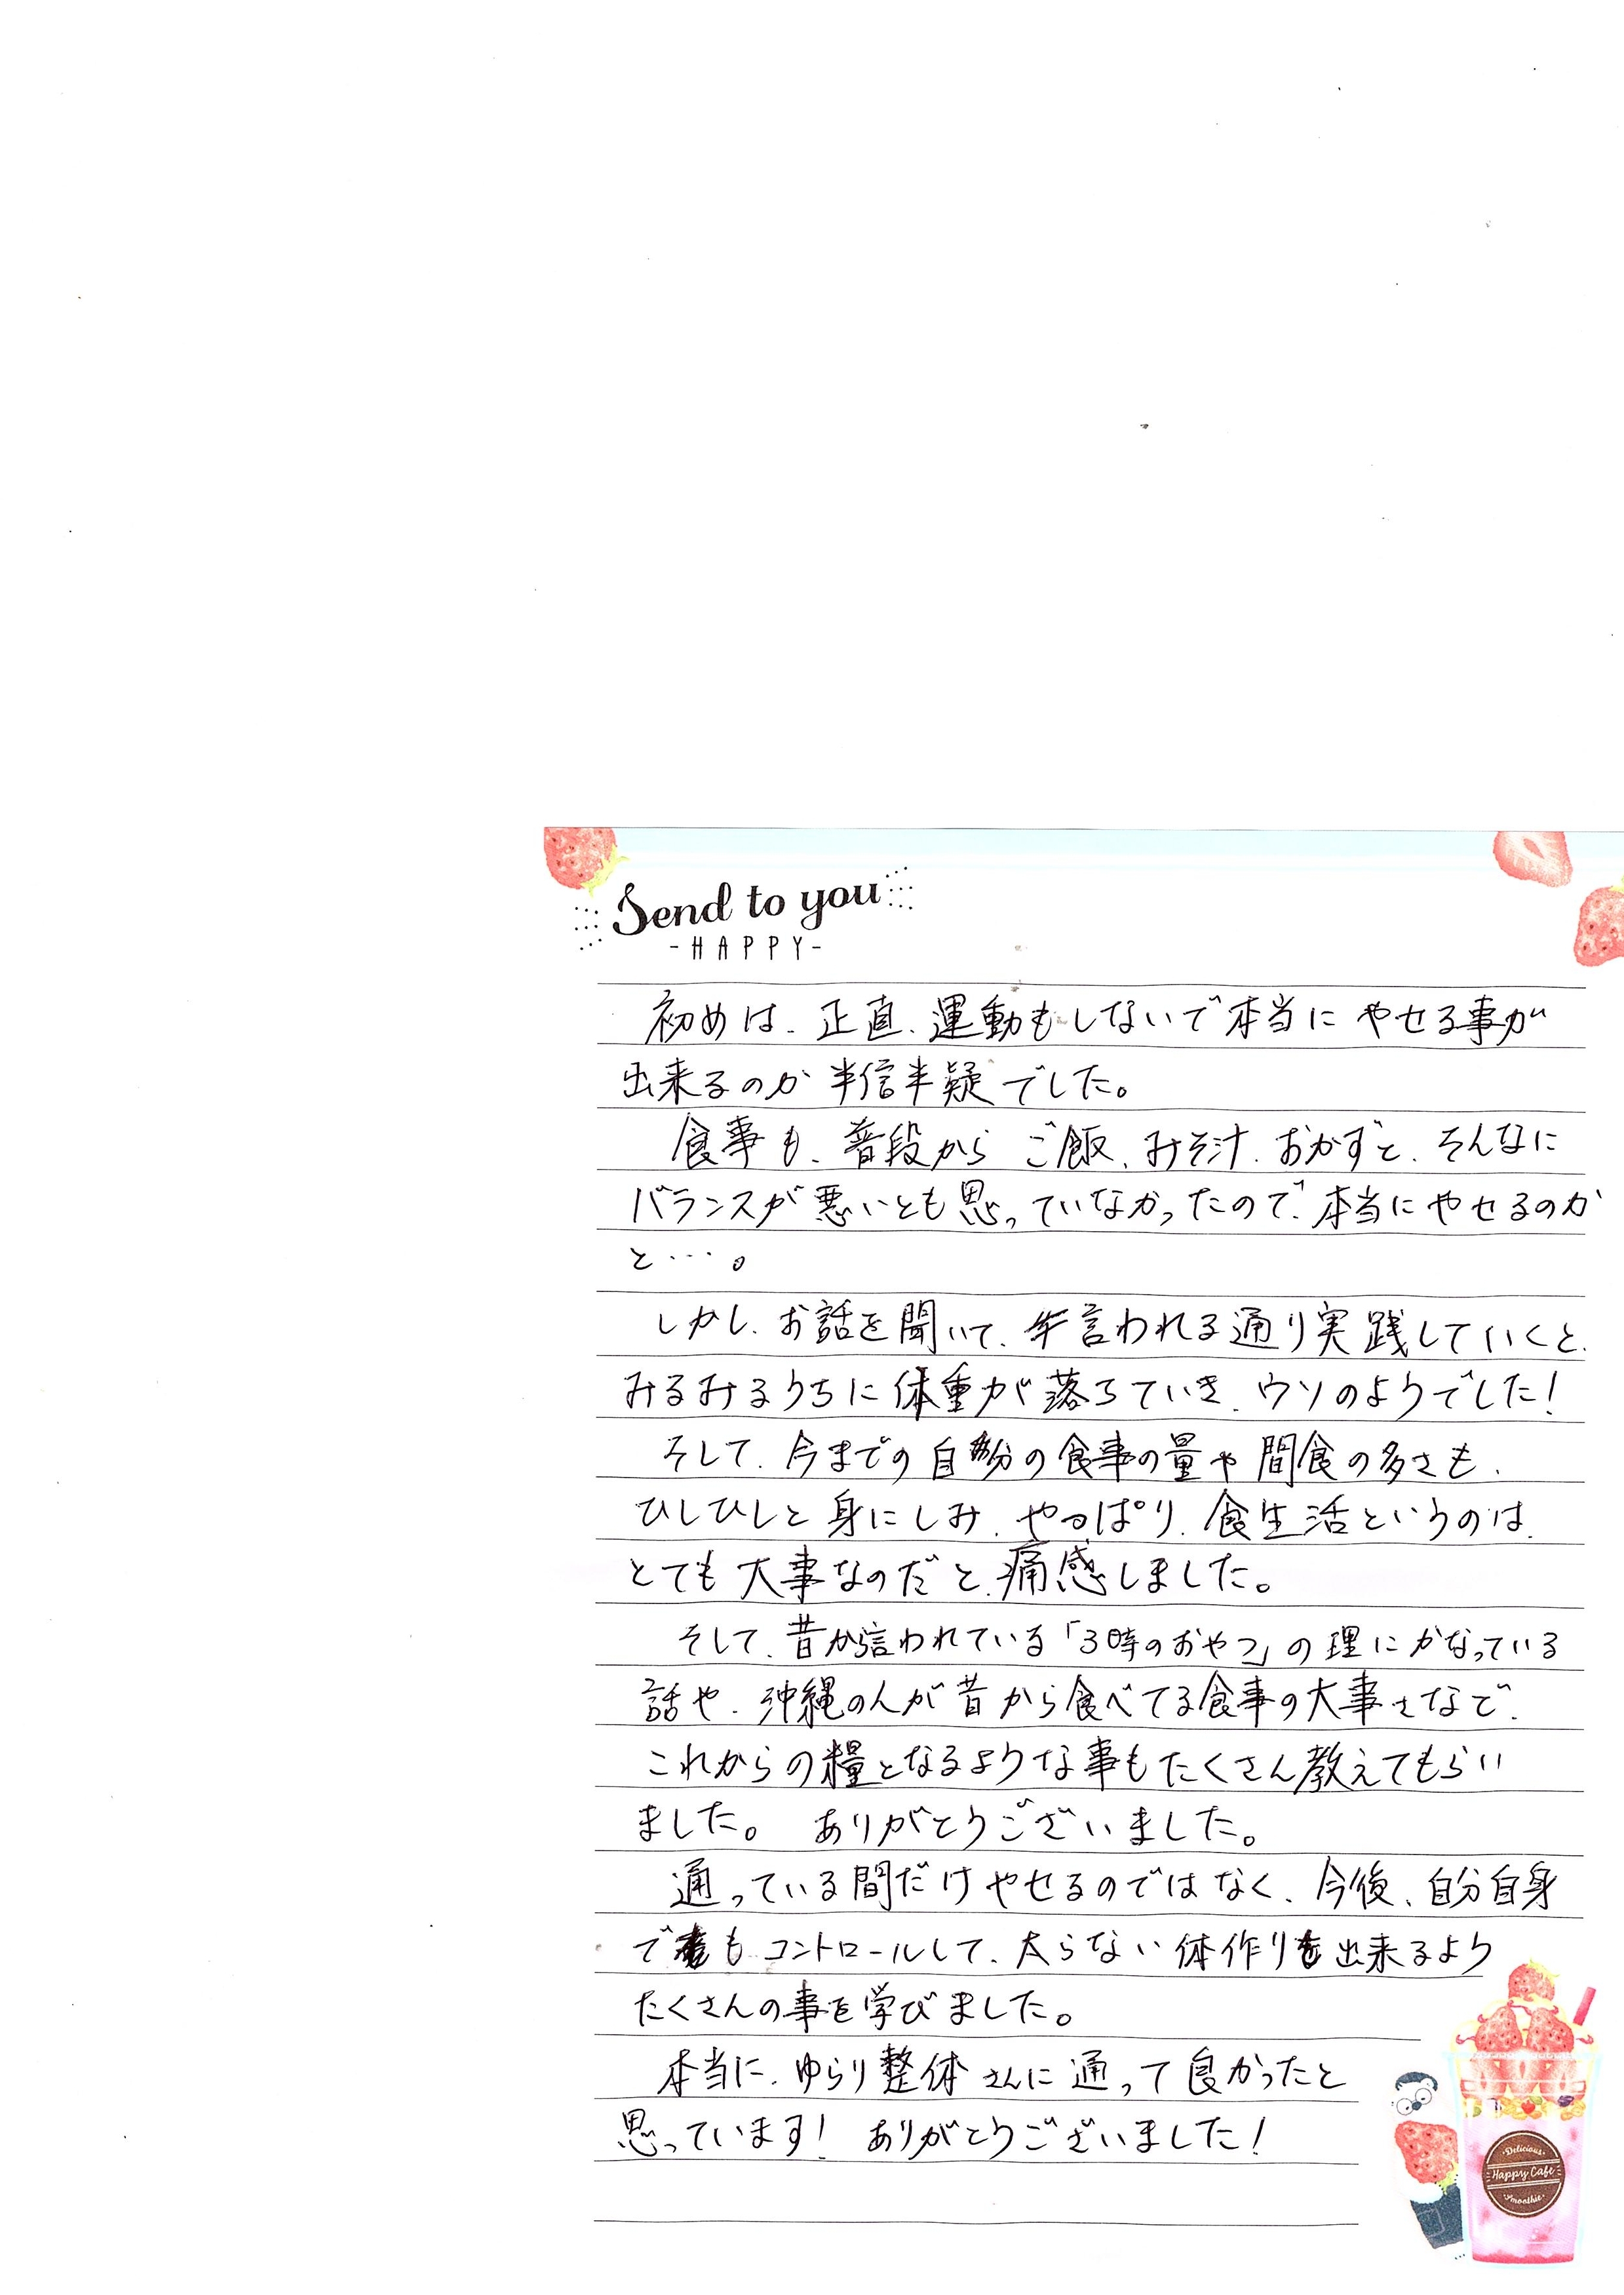 Send to you
-HAPPY-
初めは、正直、運動もしないで本当にやせる事が
出来るのか半信半疑でした。
食事も、普段からご飯、みそ汁、おかずと、そんなに
バランスが悪いとも思っていなかったので、本当にやせるのか
と…。
しかし、お話を聞いて、言われる通り実践していくと、
みるみるうちに体重が落ちていき、ウソのようでした!
そして、今までの自分の食事の量や間食の多さも、
ひしひしと身にしみ、やっぱり、食生活というのは、
とても大事なのだと、痛感しました。
そして、昔から言われている「3時のおやつ」の理にかなっている
話や、沖縄の人が昔から食べてる食事の大事さなど、
これからの糧となるような事もたくさん教えてもらい
ました。 ありがとうございました。
通っている間だけやせるのではなく、今後、自分自身
でもコントロールして、太らない体作りを出来るよう
たくさんの事を学びました。
本当に、ゆらり整体さんに通って良かったと
思っています! ありがとうございました!
Delicious
Happy Cafe
Smoothie